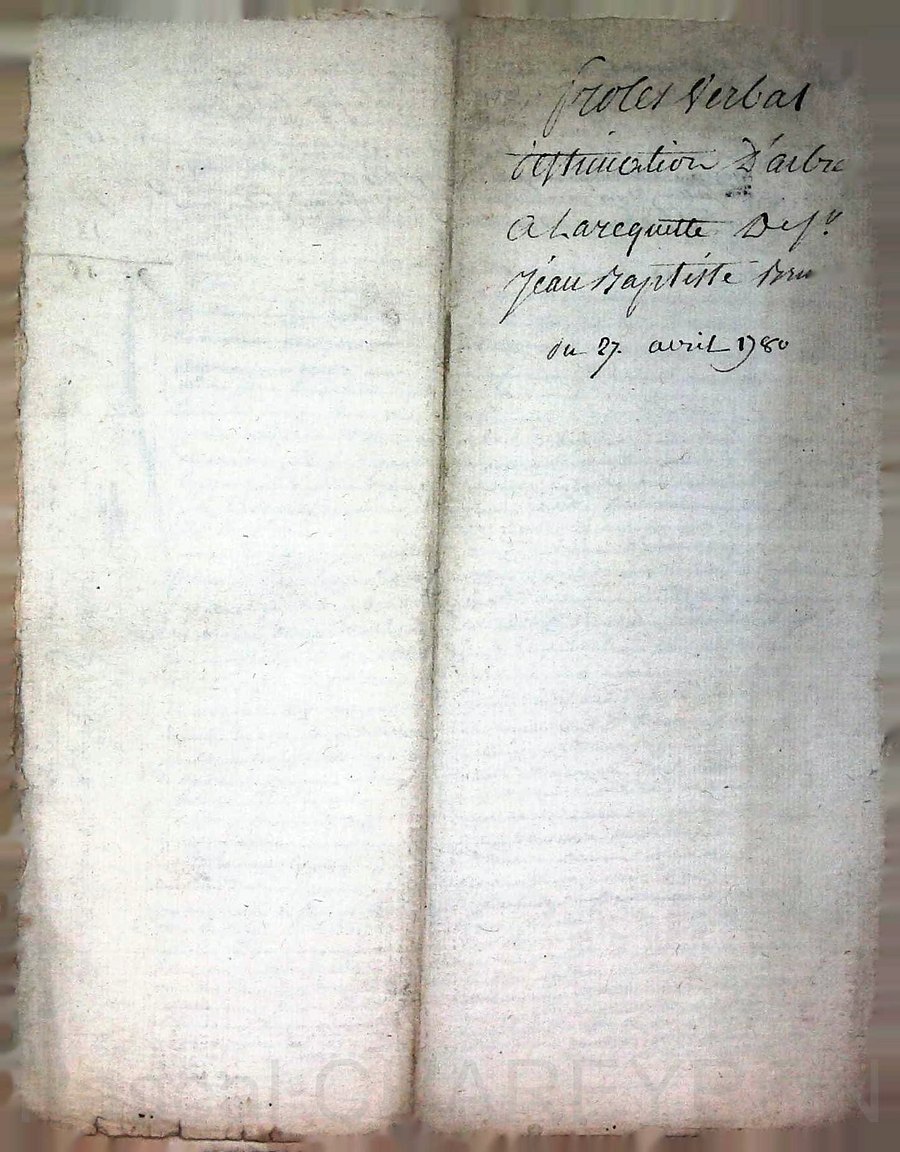 Proces Verbal
d'estimation D'arbre
A La requette De Sr.
Jean Baptiste Bru
du 27. avril 1780
Pascal CHAREYRON